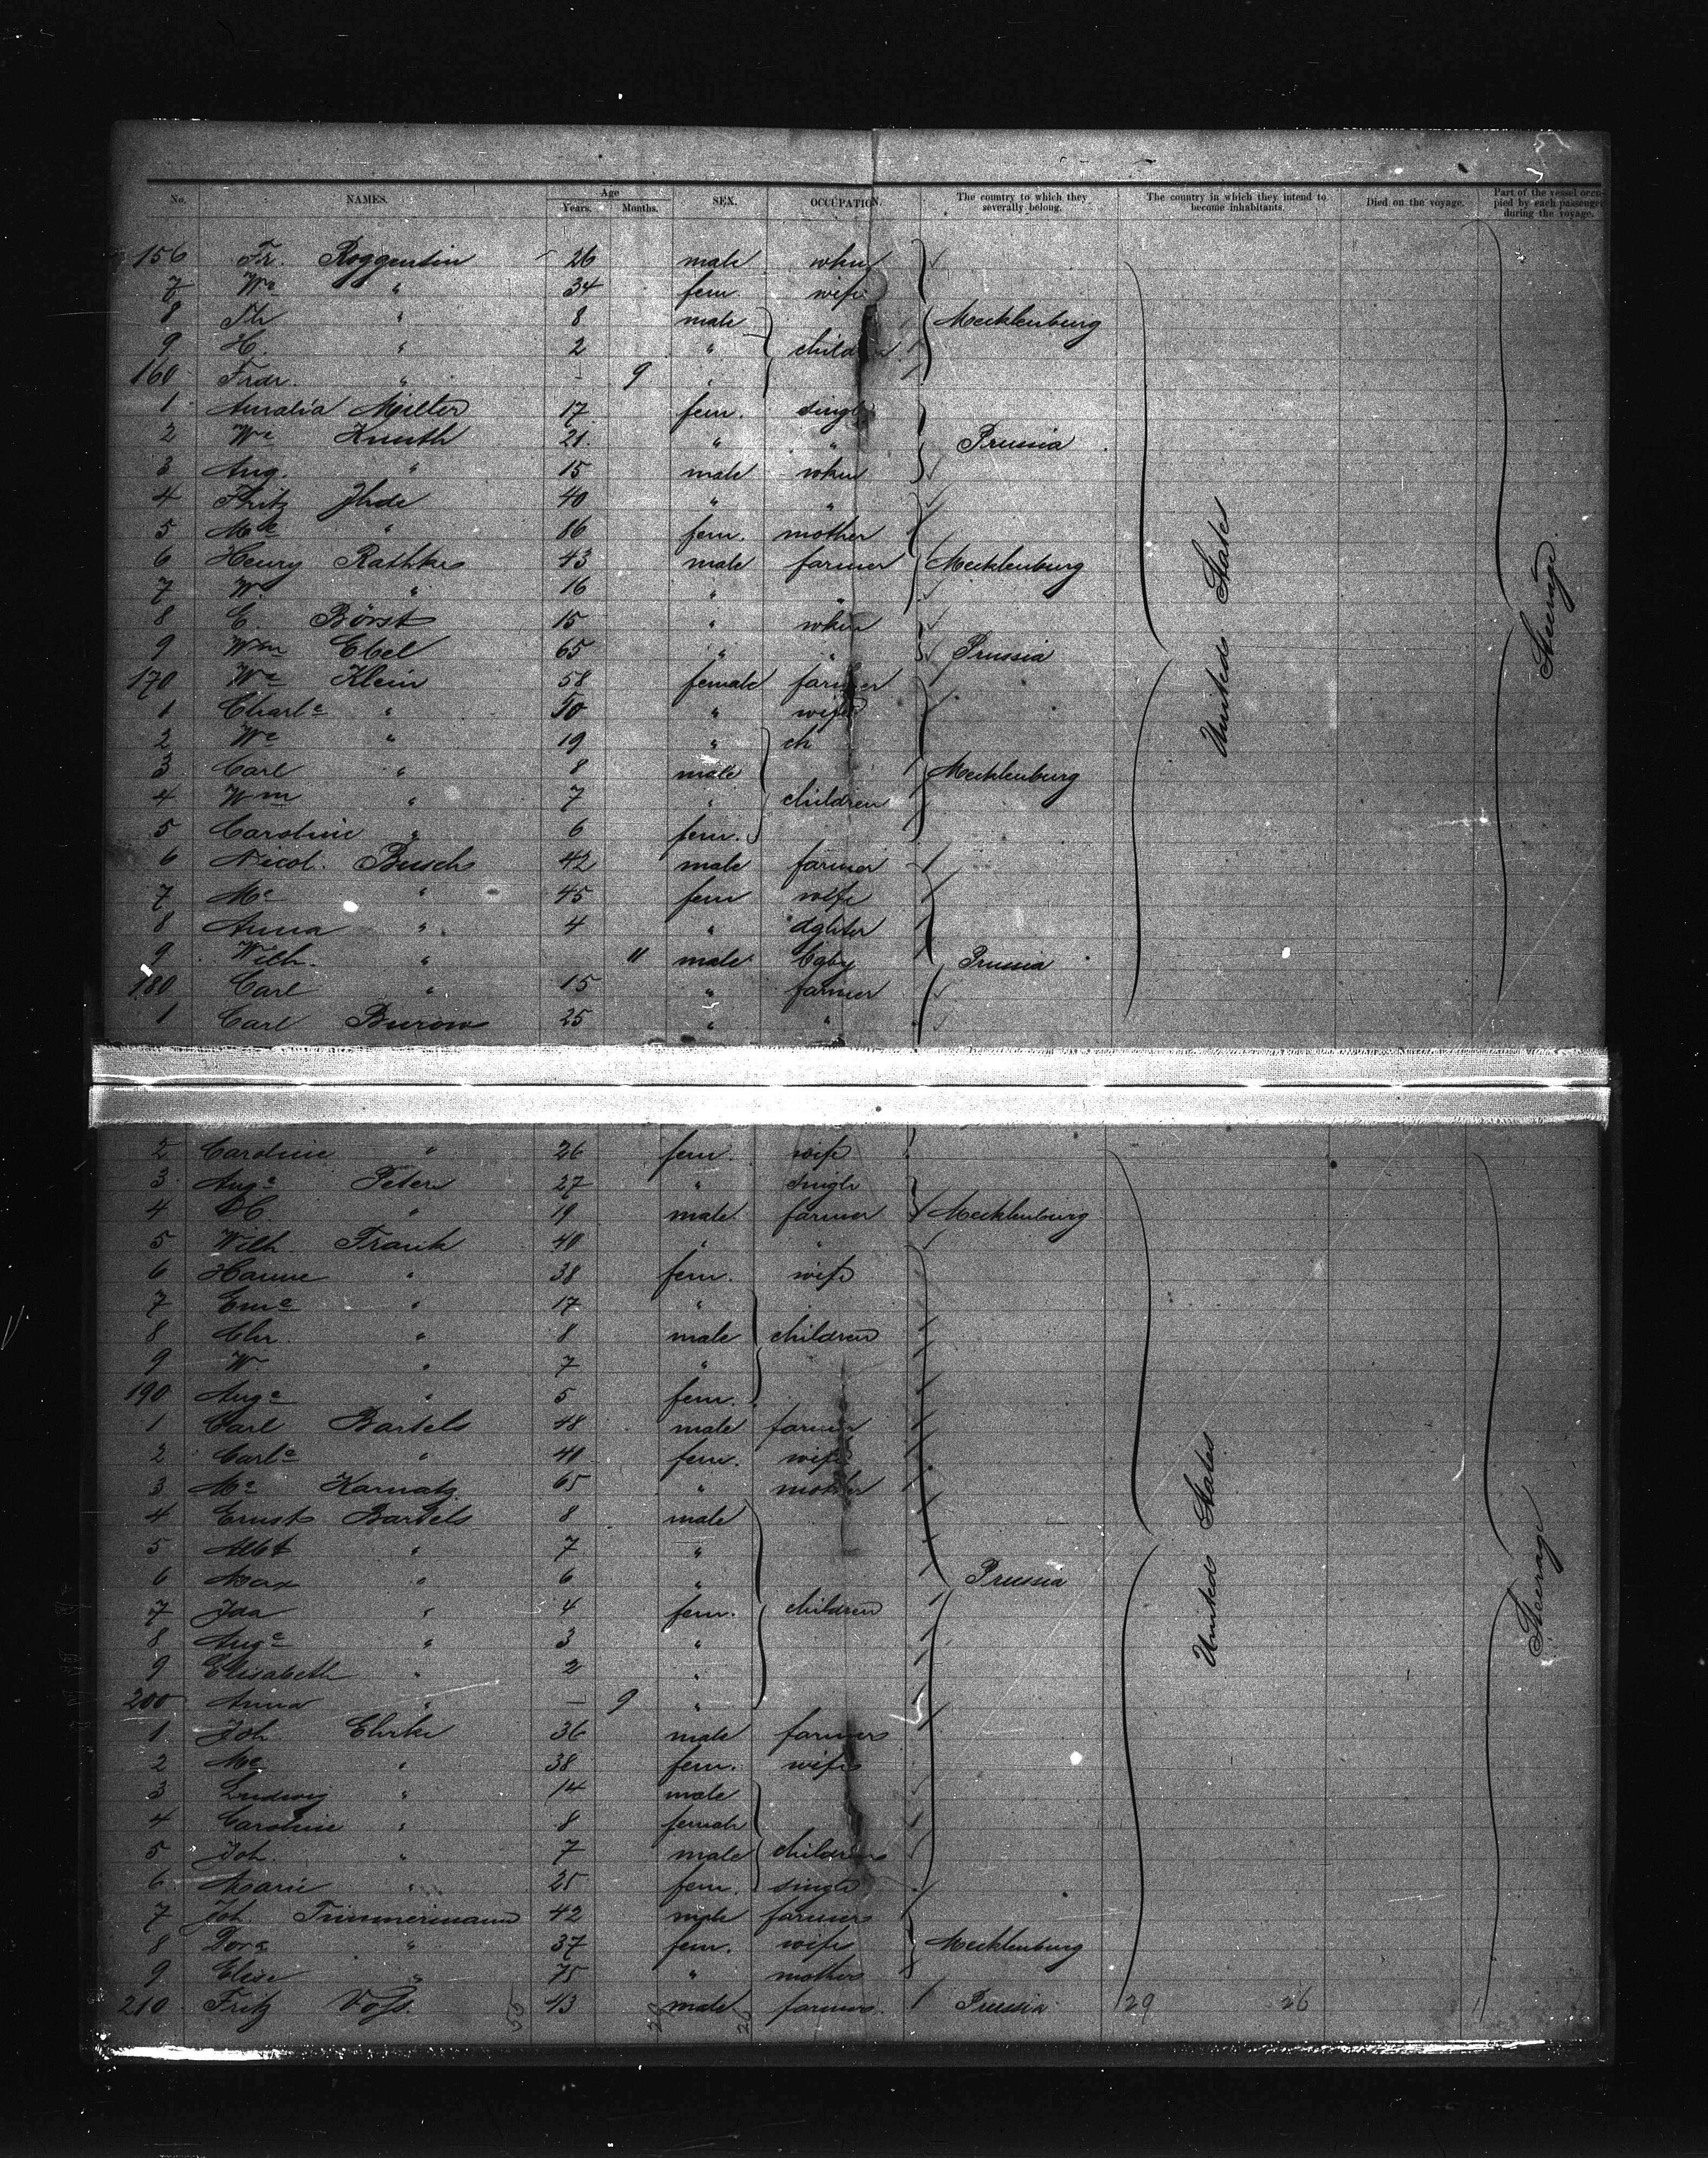 No. NAMES. Age Years. Months. SEX. OCCUPATION. The country to which they severally belong. The country in which they intend to become inhabitants. Died on the voyage. Part of the vessel occupied by each passenger during the voyage.
156 Fr. Roggentin 26 male wkm
7 Wᵉ " 34 fem. wife
8 Fr " 8 male Mecklenburg
9 H. " 2 " children
160 Fredr. " - 9 "
1 Auralia Milter 17 fem. single
2 Wᵉ Knuth 21 " " Prussia
3 Aug. " 15 male wkm
4 Fritz Ihde 40 " "
5 Mᵉ " 86 fem. mother
6 Henry Rathke 43 male farmer Mecklenburg
7 W. " 16 " "
8 C. Börst 15 " wkm
9 Wm Ebel 65 " " Prussia
170 Wᵉ Klein 58 female farmer
1 Charlᵉ " 50 " wife
2 Wᵉ " 19 " ch
3 Carl " 8 male Mecklenburg
4 Wm " 7 " children
5 Caroline " 6 fem.
6 Nicol. Busch 42 male farmer
7 Mᵉ " 45 fem wife
8 Anna " 4 " dghter
9 Wilh. " 11 male baby Prussia
180 Carl " 15 " farmer
1 Carl Burow 25 " "
United States
Steerage
2 Caroline " 26 fem. wife
3 Augᵉ Peters 27 " single
4 " 19 male farmer Mecklenburg
5 Wilh Frank 40 " "
6 Hanne " 38 fem. wife
7 Emᵉ " 17 "
8 Chr. " 8 male children
9 W " 7 "
190 Augᵉ " 5 fem.
1 Carl Bartels 48 male farmer
2 Carlᵉ " 41 fem. wife
3 Mᵉ Karnatz 65 " mother
4 Ernst Bartels 8 male
5 Albt " 7 "
6 Max " 6 " Prussia
7 Ida " 4 fem. children
8 Augᵉ " 3 "
9 Elisabeth " 2 "
200 Anna " - 9 "
1 Joh Ehrke 36 male farmer
2 Mᵉ " 38 fem. wife
3 Ludwig " 14 male
4 Caroline " 8 female
5 Joh. " 7 male children
6 Marie " 25 fem. single
7 Joh. Timmermann 42 male farmer
8 Dorᵉ " 37 fem. wife Mecklenburg
9 Elise " 75 " mother
210 Fritz Voss 43 male farmer Prussia 29 26
United States
Steerage